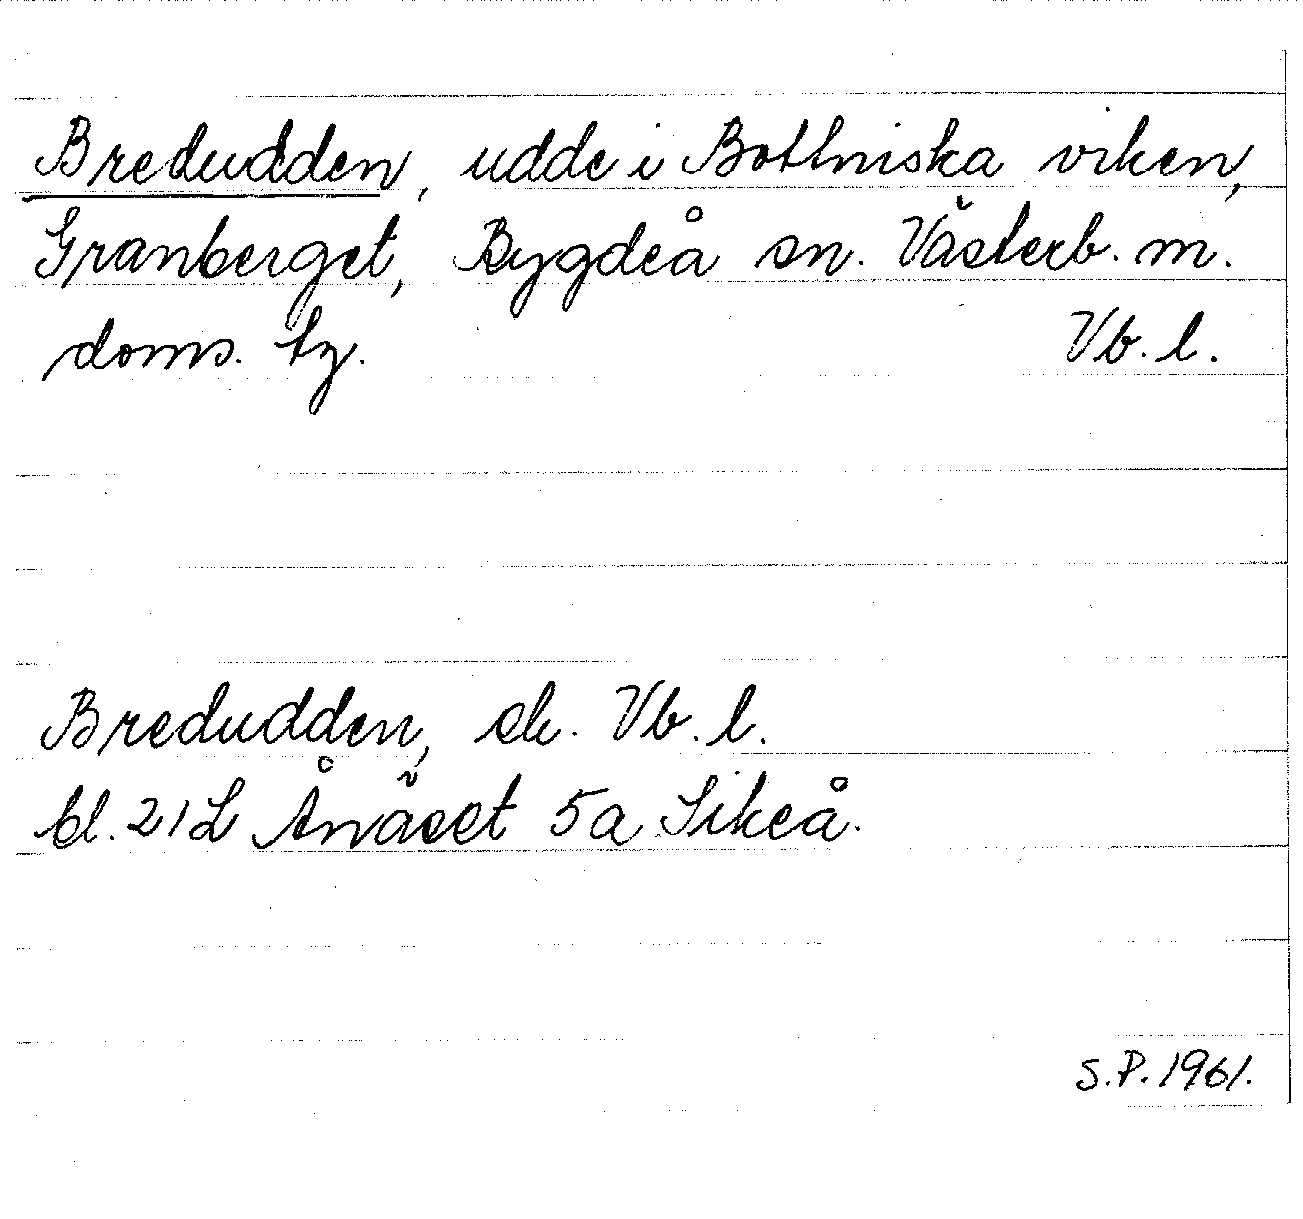 Bredudden, udde i Bothniska viken,
Granberget, Bygdeå sn. Västerb. m.
doms. tg. Vb. l.
Bredudden, ek. Vb. l.
bl. 21L Ånäset 5a Sikeå.
S.P. 1961.